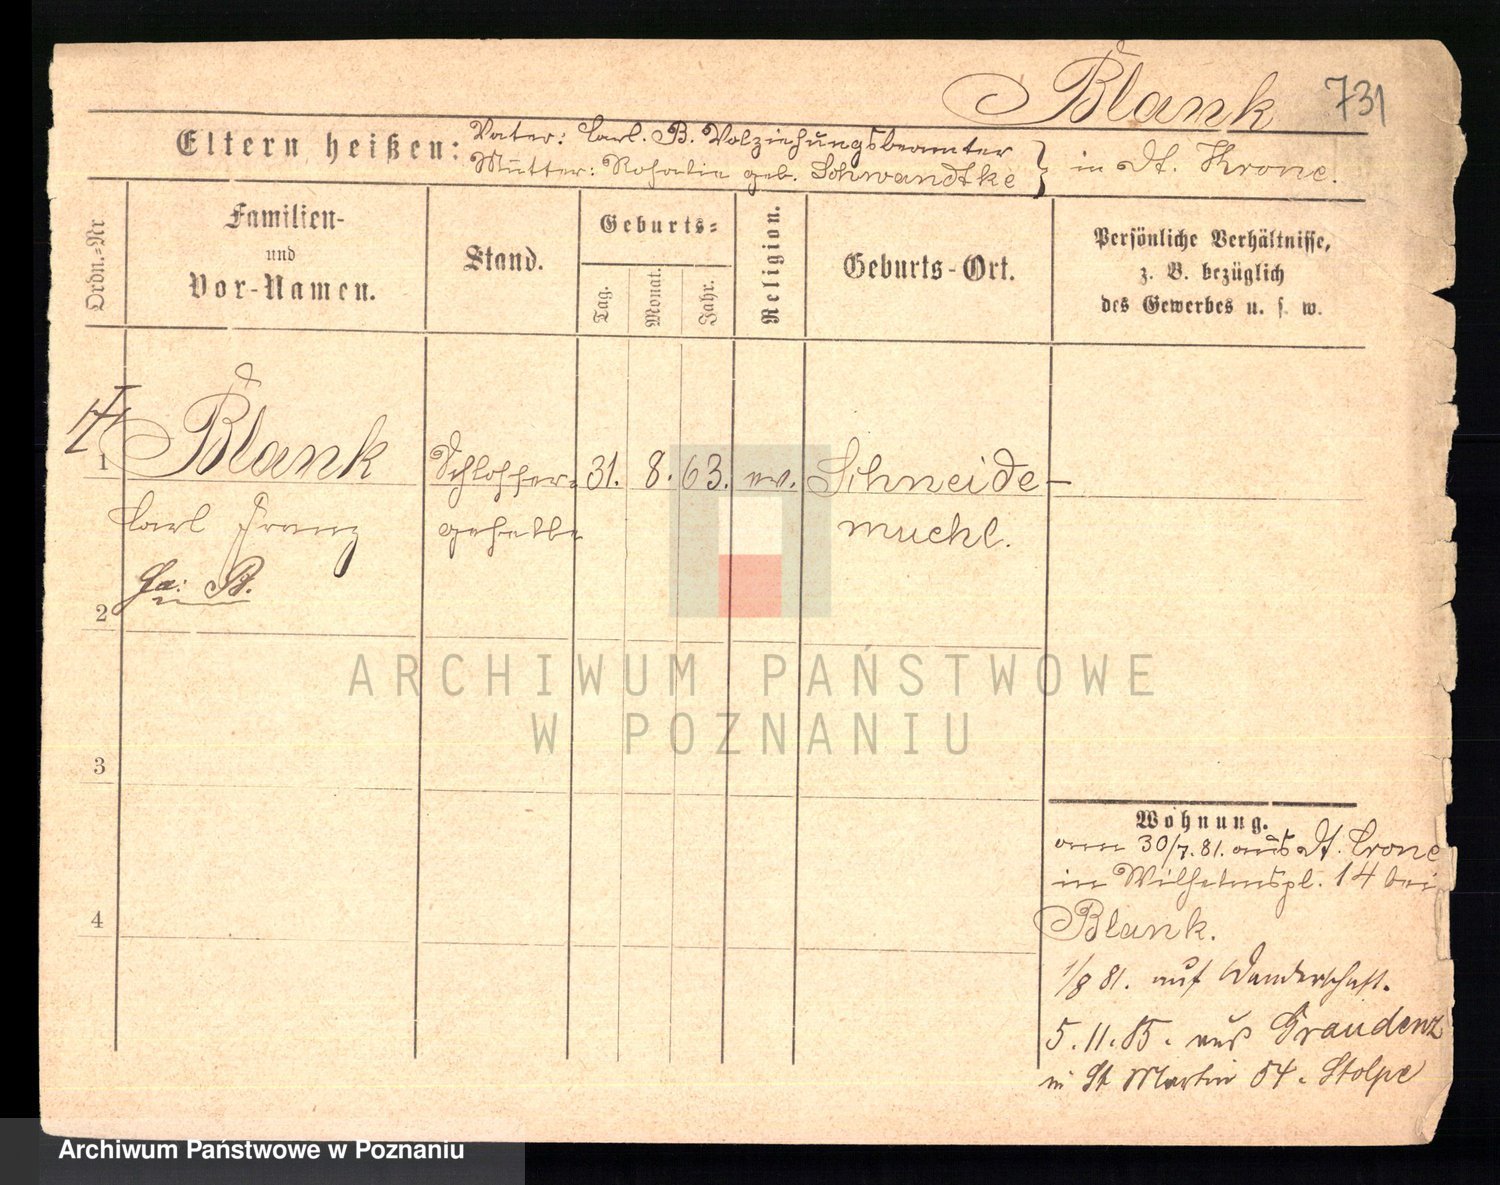 Blank 731
Eltern heißen: Vater: Carl. B. Volziehungsbeamter
Mutter: Rosalie geb. Schwandtke } in Dt. Krone.
Ordn.-Nr
Familien-
und
Vor-Namen.
Stand.
Geburts-
Tag.
Monat.
Jahr.
Religion.
Geburts-Ort.
Persönliche Verhältnisse,
z. B. bezüglich
des Gewerbes u. s. w.
1 Blank Schlosser- 31. 8. 63. ev. Schneide-
Carl Franz geselle muehl.
B.
2
ARCHIWUM PAŃSTWOWE
W POZNANIU
3
4
Wohnung.
30/7. 81. aus Dt. Crone
in Wilhelmspl. 14 bei
Blank.
1/8 81. auf Wanderschaft.
5. 11. 85. aus Graudenz
in St Martin 54. Stolpe
Archiwum Państwowe w Poznaniu